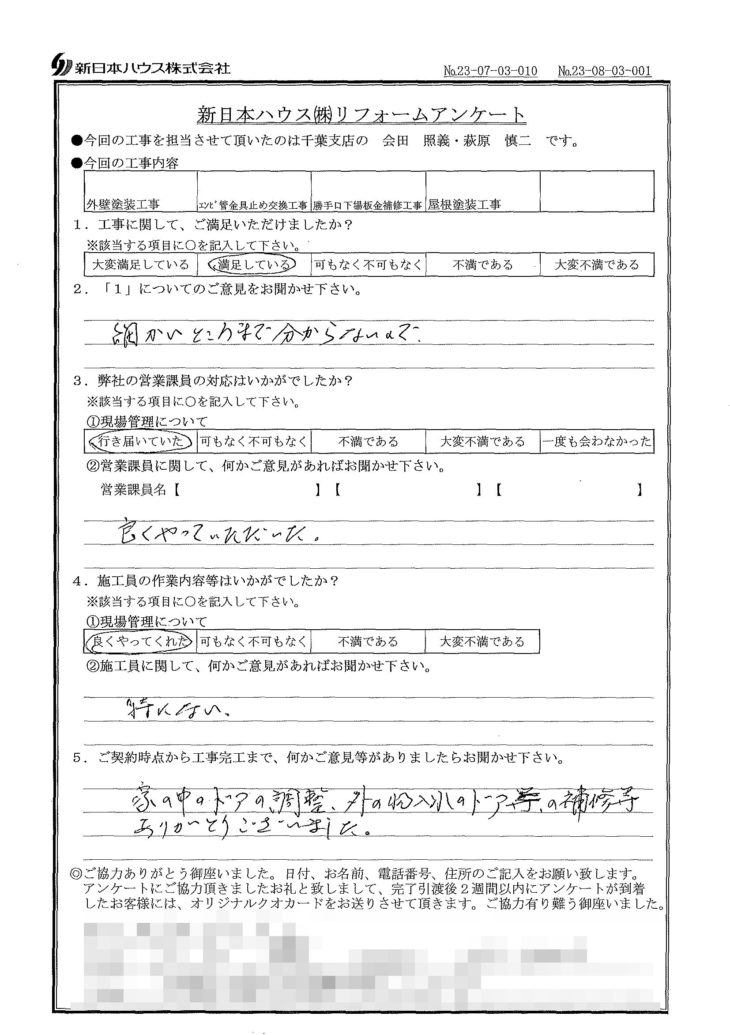 新日本ハウス株式会社
№23-07-03-010 №23-08-03-001
新日本ハウス㈱リフォームアンケート
●今回の工事を担当させて頂いたのは千葉支店の 会田 照義・萩原 慎二 です。
●今回の工事内容
外壁塗装工事 エンビ管金具止め交換工事 勝手口下場板金補修工事 屋根塗装工事
1．工事に関して、ご満足いただけましたか？
※該当する項目に○を記入して下さい。
大変満足している 満足している 可もなく不可もなく 不満である 大変不満である
2．「1」についてのご意見をお聞かせ下さい。
細かいところまで分からないので.
3．弊社の営業課員の対応はいかがでしたか？
※該当する項目に○を記入して下さい。
①現場管理について
行き届いていた 可もなく不可もなく 不満である 大変不満である 一度も会わなかった
②営業課員に関して、何かご意見があればお聞かせ下さい。
営業課員名【 】【 】【 】
良くやっていただいた。
4．施工員の作業内容等はいかがでしたか？
※該当する項目に○を記入して下さい。
①現場管理について
良くやってくれた 可もなく不可もなく 不満である 大変不満である
②施工員に関して、何かご意見があればお聞かせ下さい。
特にない、
5．ご契約時点から工事完工まで、何かご意見等がありましたらお聞かせ下さい。
家の中のドアの調整、外の物入れのドア等、の補修等
ありがとうございました。
◎ご協力ありがとう御座いました。日付、お名前、電話番号、住所のご記入をお願い致します。
アンケートにご協力頂きましたお礼と致しまして、完了引渡後２週間以内にアンケートが到着
したお客様には、オリジナルクオカードをお送りさせて頂きます。ご協力有り難う御座いました。